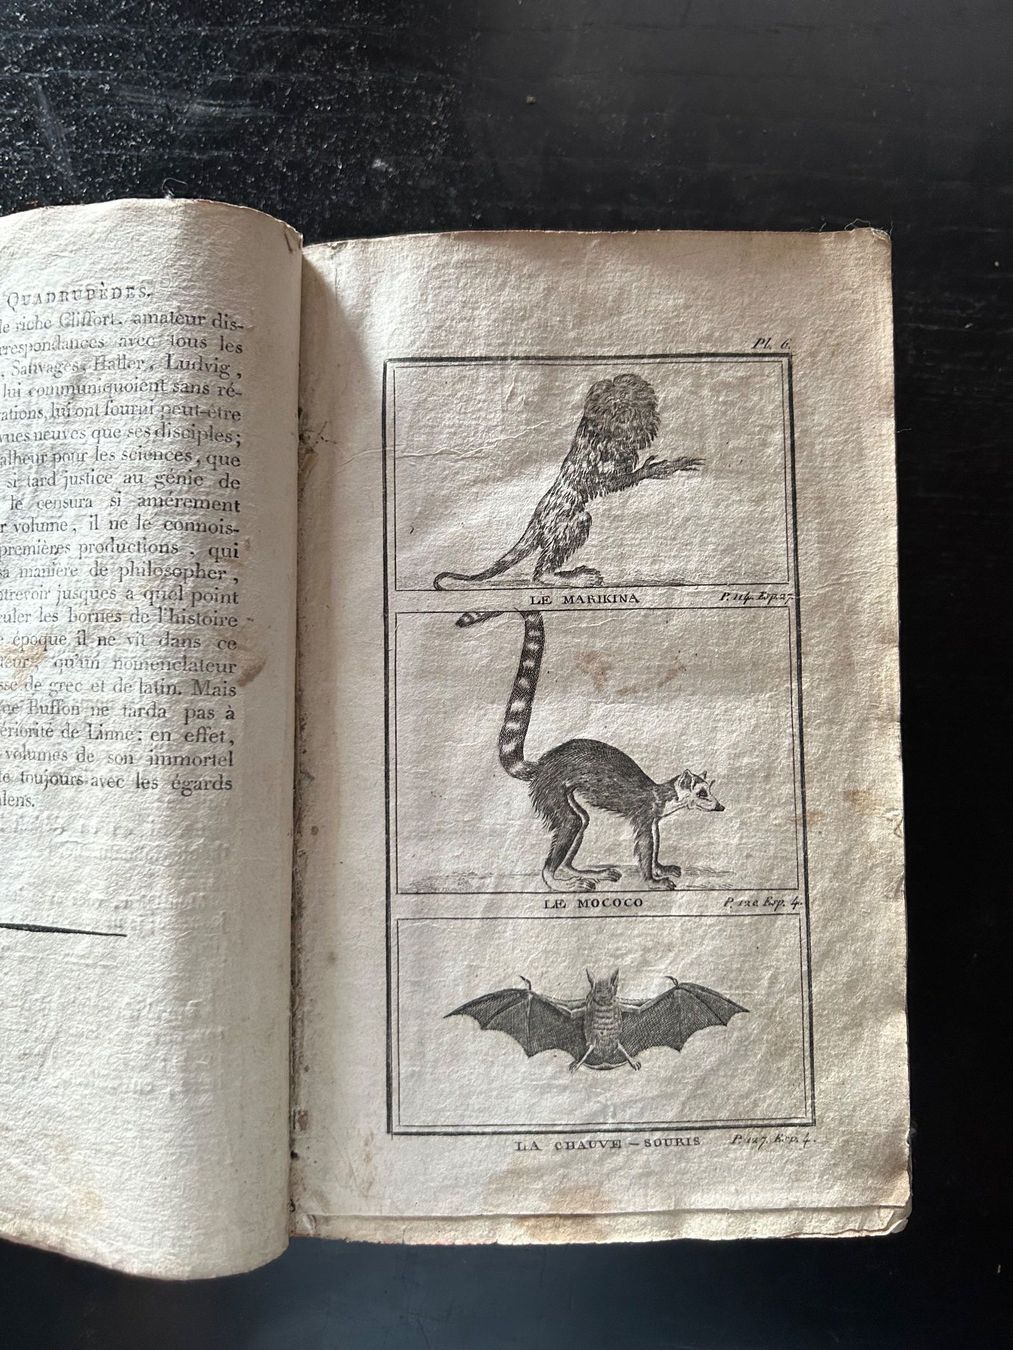 QUADRUPÈDES.
le riche Cliffort, amateur dis-
rrespondances avec tous les
, Sauvages, Haller, Ludvig,
lui communiquoient sans ré-
rations, lui ont fourni peut-être
vues neuves que ses disciples;
alheur pour les sciences, que
si tard justice au génie de
le censura si amérement
r volume, il ne le connois-
premières productions, qui
sa manière de philosopher,
ntrevoir jusques à quel point
culer les bornes de l'histoire
e époque, il ne vit dans ce
teur, qu'un nomenclateur
sse de grec et de latin. Mais
que Buffon ne tarda pas à
ériorité de Linné; en effet,
volumes de son immortel
le toujours avec les égards
alens.
Pl. 6.
LE MARIKINA P. 114. Esp. 27.
LE MOCOCO P. 120 Esp. 4.
LA CHAUVE-SOURIS P. 127. Esp. 4.